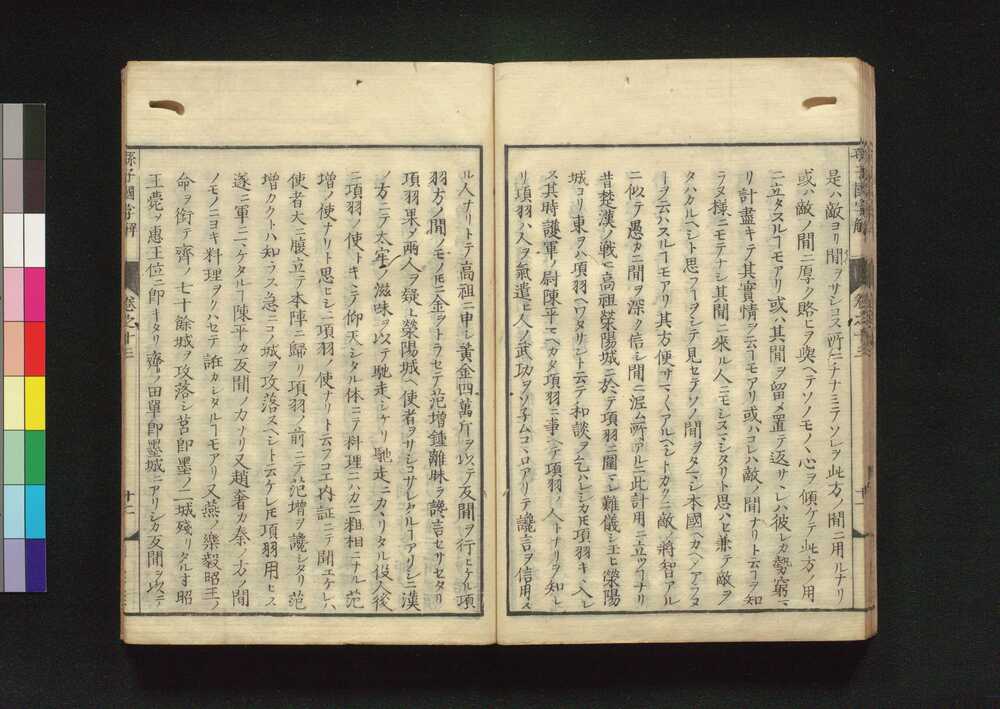 是ハ敵ヨリ間ヲサシコス所ニチナミテソレヲ此方ノ間ニ用ルナリ
或ハ敵ノ間ニ厚ク賂ヒヲ與ヘテソノモノヽ心ヲ傾ケテ此方ノ用
ニ立タスルヿモアリ或ハ其間ヲ留メ置テ返サヽレハ彼レカ勢窮マ
リ計盡キテ其實情ヲ云ヿモアリ或ハコレハ敵ノ間ナリト云ヿヲ知
ラヌ様ニモテナシ其間ニ來ル人ニモシスマシタリト思ハセ兼テ敵ヲ
タハカルヘシト思フヿヲシテ見セテソノ間ヲタマシ本國ヘカヘリアラヌ
ヿヲ云ハスルヿモアリ其方便サマ〱アルヘシトカクニ敵ノ將智アル
ニ似テ愚カニ間ヲ深ク信シ間ニ泥ム所アルニ此計用ニ立ツヿナリ
昔楚漢ノ戰ニ高祖滎陽城ニ於テ項羽ニ圍マレ難儀シ玉ヒ滎陽
城ヨリ東ヲハ項羽ヘワタサント云テ和談ヲ乞ハレシカ𪜈項羽キヽ入レ
ス其時護軍ノ尉陳平マヘカタ項羽ニ事ヘテ項羽ノ人トナリヲ知レ
リ項羽ハ人ヲ氣遣ヒ人ノ武功ヲソ子ムコヽロアリテ讒言ヲ信用ス
ル人ナリトテ高祖ニ申シ黄金四萬斤ヲ以テ反間ヲ行ヒケル項
羽方ノ間ノモノ𪜈ニ金ヲトラセテ范增鍾離眛ヲ讒言セサセタリ
項羽果メ両人ヲ疑ヒ滎陽城ヘ使者ヲサシコサレタルヿアリシニ漢
ノ方ニテ太牢ノ滋味ヲ以テ馳走シケリ馳走ニカヽリタル役人後
ニ項羽ノ使トキヽテ仰天シタル体ニテ料理ニハカニ粗相ニナル范
增ノ使ナリト思ヒシニ項羽ノ使ナリト云フコヱ内証ニテ聞エケレハ
使者大ニ腹立テ本陣ニ歸リ項羽ノ前ニテ范增ヲ讒シタリ范
增カクトハ知ラス急ニコノ城ヲ攻落スヘシト云ケレ𪜈項羽用ヒス
遂ニ軍ニマケタルヿ陳平カ反間ノ力ナリ又趙奢カ秦ノ方ノ間
ノモノニヨキ料理ヲクハセテ誑カシタルヿモアリ又燕ノ樂毅昭王ノ
命ヲ銜テ齊ノ七十餘城ヲ攻落シ莒即墨ノ二城殘リタル寸昭
王薨ヲ惠王位ニ即キタリ齊ノ田單即墨城ニアリシカ反間ヲ以テ
孫子國字解
卷之十三
十二